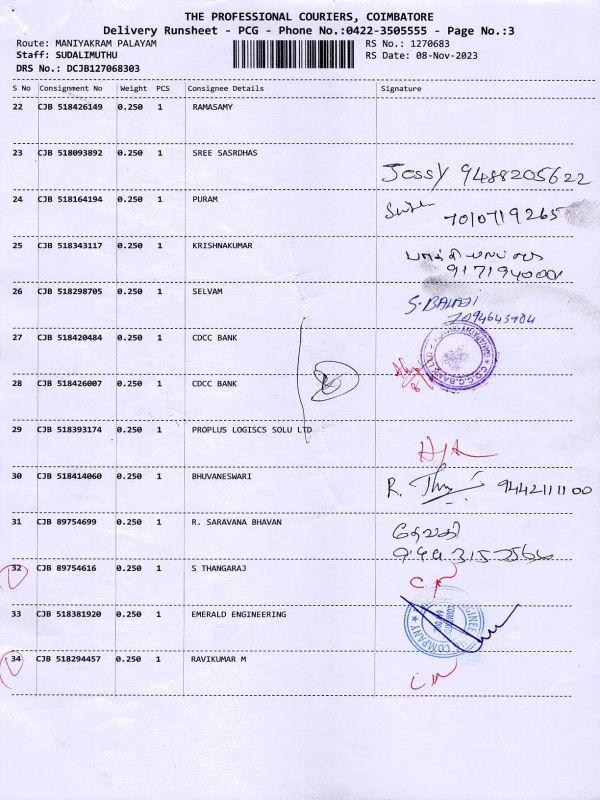 THE PROFESSIONAL COURIERS, COIMBATORE
Delivery Runsheet - PCG - Phone No.:0422-3505555 - Page No.:3
Route: MANIYAKRAM PALAYAM RS No.: 1270683
Staff: SUDALIMUTHU RS Date: 08-Nov-2023
DRS No.: DCJB127068303
S No Consignment No Weight PCS Consignee Details Signature
22 CJB 518426149 0.250 1 RAMASAMY
23 CJB 518093892 0.250 1 SREE SASRDHAS
Jessy 9488205622
24 CJB 518164194 0.250 1 PURAM
7010719265
25 CJB 518343117 0.250 1 KRISHNAKUMAR
26 CJB 518298705 0.250 1 SELVAM
S. BALAJI
7094643904
27 CJB 518420484 0.250 1 CDCC BANK
28 CJB 518426007 0.250 1 CDCC BANK
29 CJB 518393174 0.250 1 PROPLUS LOGISCS SOLU LTD
30 CJB 518414060 0.250 1 BHUVANESWARI
R. 9442111100
31 CJB 89754699 0.250 1 R. SARAVANA BHAVAN
தேவகி
32 CJB 89754616 0.250 1 S THANGARAJ
33 CJB 518381920 0.250 1 EMERALD ENGINEERING
COMPANY
34 CJB 518294457 0.250 1 RAVIKUMAR M